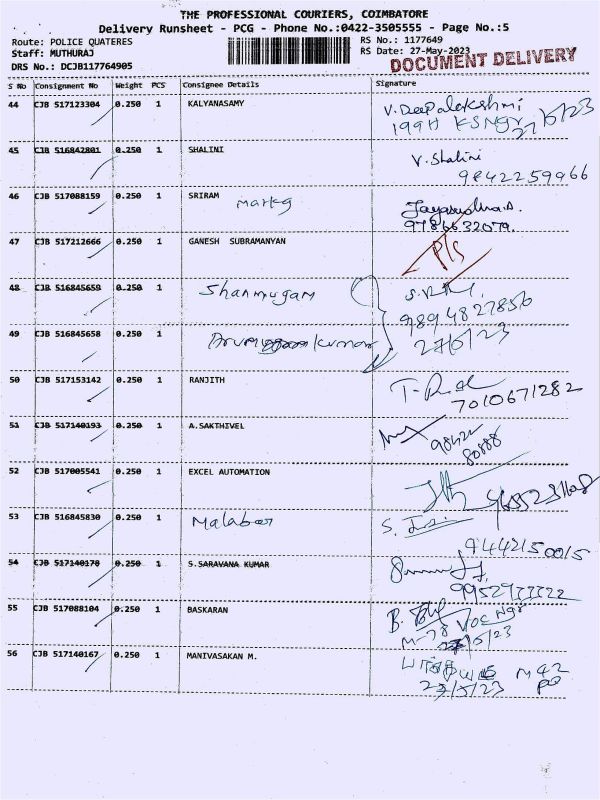 THE PROFESSIONAL COURIERS, COIMBATORE
Delivery Runsheet - PCG - Phone No.:0422-3505555 - Page No.:5
Route: POLICE QUATERES
RS No.: 1177649
Staff: MUTHURAJ
RS Date: 27-May-2023
DRS No.: DCJB117764905
DOCUMENT DELIVERY
S No Consignment No Weight PCS Consignee Details Signature
44 CJB 517123304 0.250 1 KALYANASAMY V. Deepalakshmi
199H KSNgr 27/5/23
45 CJB 516842801 0.250 1 SHALINI V. Shalini
9842259966
46 CJB 517088159 0.250 1 SRIRAM
9786632079.
47 CJB 517212666 0.250 1 GANESH SUBRAMANYAN P/S
48 CJB 516845659 0.250 1 Shanmugam
9894827856
49 CJB 516845658 0.250 1 27/5/23
50 CJB 517153142 0.250 1 RANJITH
7010671282
51 CJB 517140193 0.250 1 A.SAKTHIVEL 98422
80888
52 CJB 517005541 0.250 1 EXCEL AUTOMATION
53 CJB 516845830 0.250 1 Malabar
9442150015
54 CJB 517140170 0.250 1 S.SARAVANA KUMAR
55 CJB 517088104 0.250 1 BASKARAN B.
M-78 VOC Ngr
27/5/23
56 CJB 517140167 0.250 1 MANIVASAKAN M. M 42
27/5/23